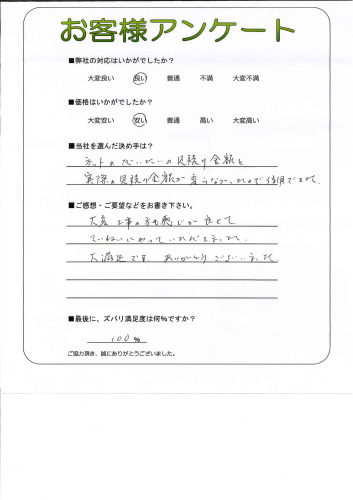 お客様アンケート
■弊社の対応はいかがでしたか?
大変良い 良い 普通 不満 大変不満
■価格はいかがでしたか?
大変安い 安い 普通 高い 大変高い
■当社を選んだ決め手は?
ネットのだいたいの見積り金額と
実際の見積り金額が変らなかったので信用できた
■ご感想・ご要望などをお書き下さい。
大変 工事の方も感じが良くて
ていねいにやっていただきました。
大満足です ありがとうございました
■最後に、ズバリ満足度は何%ですか?
100%
ご協力頂き、誠にありがとうございました。